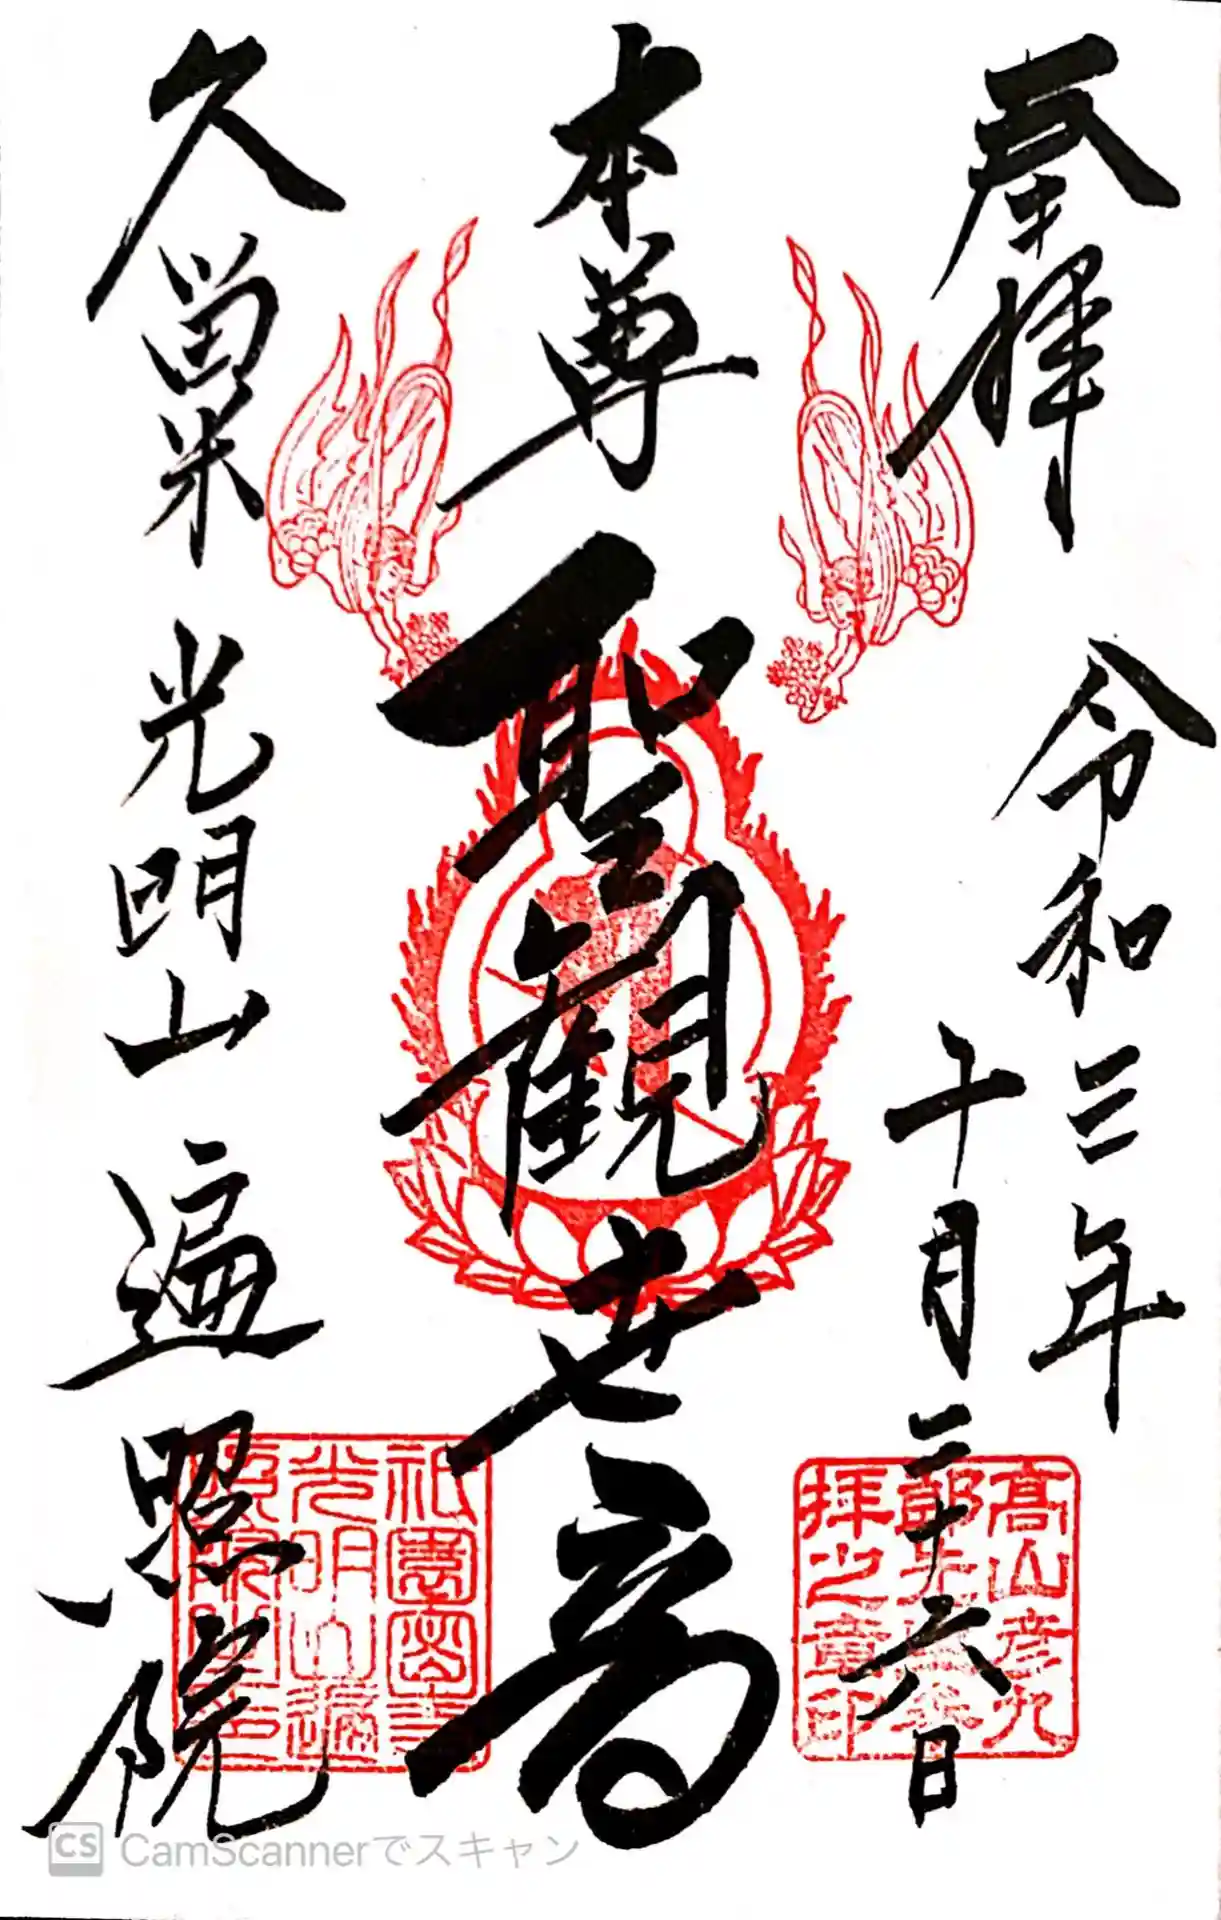 奉拝
令和三年
十月二十六日
本尊
聖観世音
久留米
光明山
遍照院
高山彦九
拝之章印
祇園寺
光明山遍
CS CamScannerでスキャン